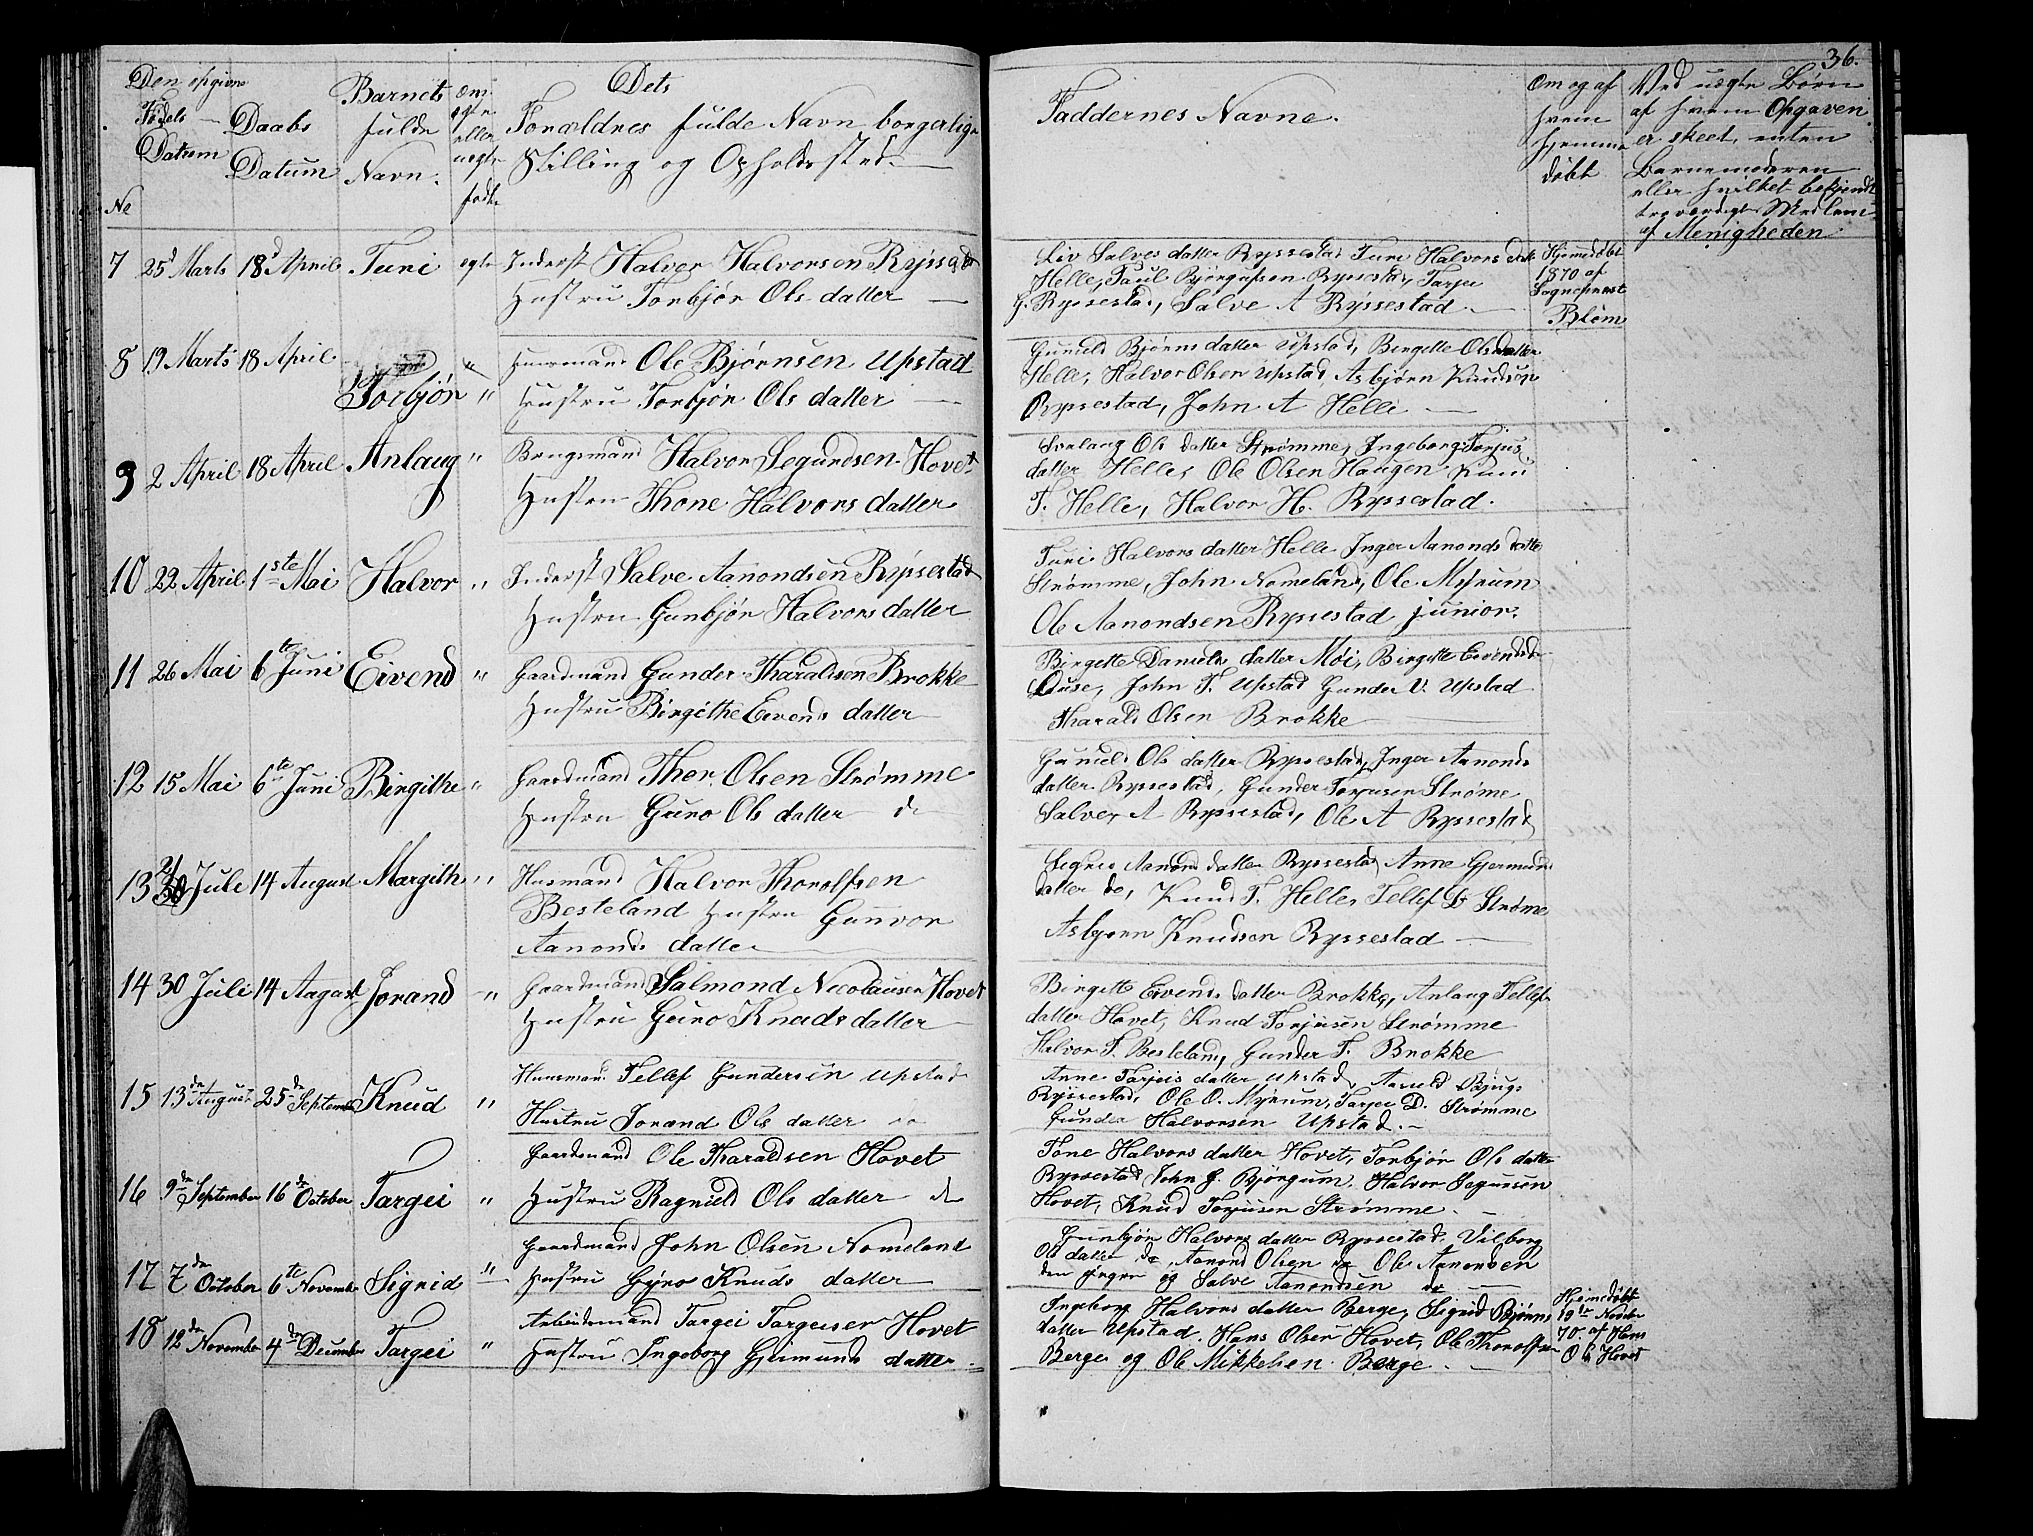 36.
Den opgivne Fødels Datum
Daabs Datum
Barnets fulde Navn.
Om ægte eller uægte fødte
Dets
Forældres fulde Navn borgerlige
Stilling og Opholdssted.
Faddernes Navne.
Om og af hvem hjemme døbt
Ved uægte Børn
af hvem Opgaven
er skeet, enten
Barnemoderen
eller hvilket bekjendt
troværdigt Medlem
af Menigheden
No
7 25d Marts 18d April Turi egte Inderst Halvor Halvorsen Ryssestad
Hustru Torbjør Ols datter
Liv Salves datter Ryssestad Ture Halvors datt
Helle, Paul Bjørgufsen Ryssestad, Tarjei
G. Ryssestad, Salve A Ryssestad.
Hjemmedøbt
1870 af
Sogneprest
Blom
8 19 Marts 18 April Torbjør " Huusmand Ole Bjørnsen Upstad
" Hustru Torbjør Ols datter
Gunild Bjørns datter Upstad, Birgitte Olsdatter
Helle, Halvor Olsen Upstad, Asbjørn Knudsen
Ryssestad, John A Helle
9 2 April 18 April Anlaug " Brugsmand Halvor Segurdsen Hovet
Hustru Thone Halvors datter
Svalaug Ols datter Strømme, Ingeborg Torjus
datter Helle, Ole Olsen Haugen Knud
T. Helle, Halvor H. Ryssestad.
10 22 April 1ste Mai Halvor " Inderst Salve Aanondsen Ryssestad
Hustru Gunbjør Halvors datter
Turi Halvors datter Helle Inger Aanonds datte
Strømme, John Nomeland, Ole Myrum
Ole Aanondsen Ryssestad junior.
11 26 Mai 6te Juni Eivend " Gaardmand Gunder Tharaldsen Brokke
Hustru Birgithe Eivends datter
Birgitte Daniels datter Moi, Birgitte Eivendsd
Ouse, John T. Upstad Gunder V. Upstad
Tharald Olsen Brokke
12 15 Mai 6te Juni Birgithe " Gaardmand Thor Olsen Strømme
Hustru Guro Ols datter do
Gunild Ols datter Ryssestad, Inger Aanonds
datter Ryssestad, Gunder Torjusen Strøme
Salve A Ryssestad, Ole A Ryssestad
13 21/30 Jule 14 August Margith " Husmand Halvor Thorolfsen
Besteland Hustru Gunvor
Aanonds datter
Sigrid Aanonds datter Ryssestad Anne Gjermunds
datter do, Knud T. Helle, Tellef D Strøme
Asbjørn Knudsen Ryssestad
14 30 Juli 14 August Jorand " Gaardmand Salmond Nicolausen Hovet
Hustru Guro Knuds datter
Birgitte Eivends datter Brokke, Anlaug Tellefs
datter Hovet, Knud Torjusen Strømme
Halvor T. Besteland, Gunder T. Brokke
15 13de August 25de September Knud " Huusmand Tellef Gundersen Upstad
Hustru Jorand Ols datter do
Anne Tarjeis datter Upstad, Aanuld Bjugs
Ryssestad, Ole O. Myrum, Tarjei D. Strømme
Gunder Halvorsen Upstad.
16 9de September 16de October Targei " Gaardmand Ole Tharaldsen Hovet
Hustru Ragnild Ols datter do
Tone Halvors datter Hovet, Torbjør Ols datter
Ryssestad, John G. Bjørgum, Halvor Segursen
Hovet, Knud Torjusen Strømme.
17 7de October 6te November Sigrid " Gaardmand John Olsen Nomeland
Hustru Gyro Knuds datter
Gunbjør Halvors datter Ryssestad, Vilborg
Ols datter do, Aanond Olsen do Ole Aanondsen
den yngre og Salve Aanondsen do
18 12de November 4de December Targei " Arbeidsmand Targei Targeisen Hovet
Hustru Ingeborg Gjeimunds datter
Ingeborg Halvors datter Berge, Sigrid Bjørns
datter Upstad, Hans Olsen Hovet, Ole Thorolfsen
Berge og Ole Mikkelsen Berge.
Hjemedøbt
19de Novbr
70 af Hans
Ols Hovet